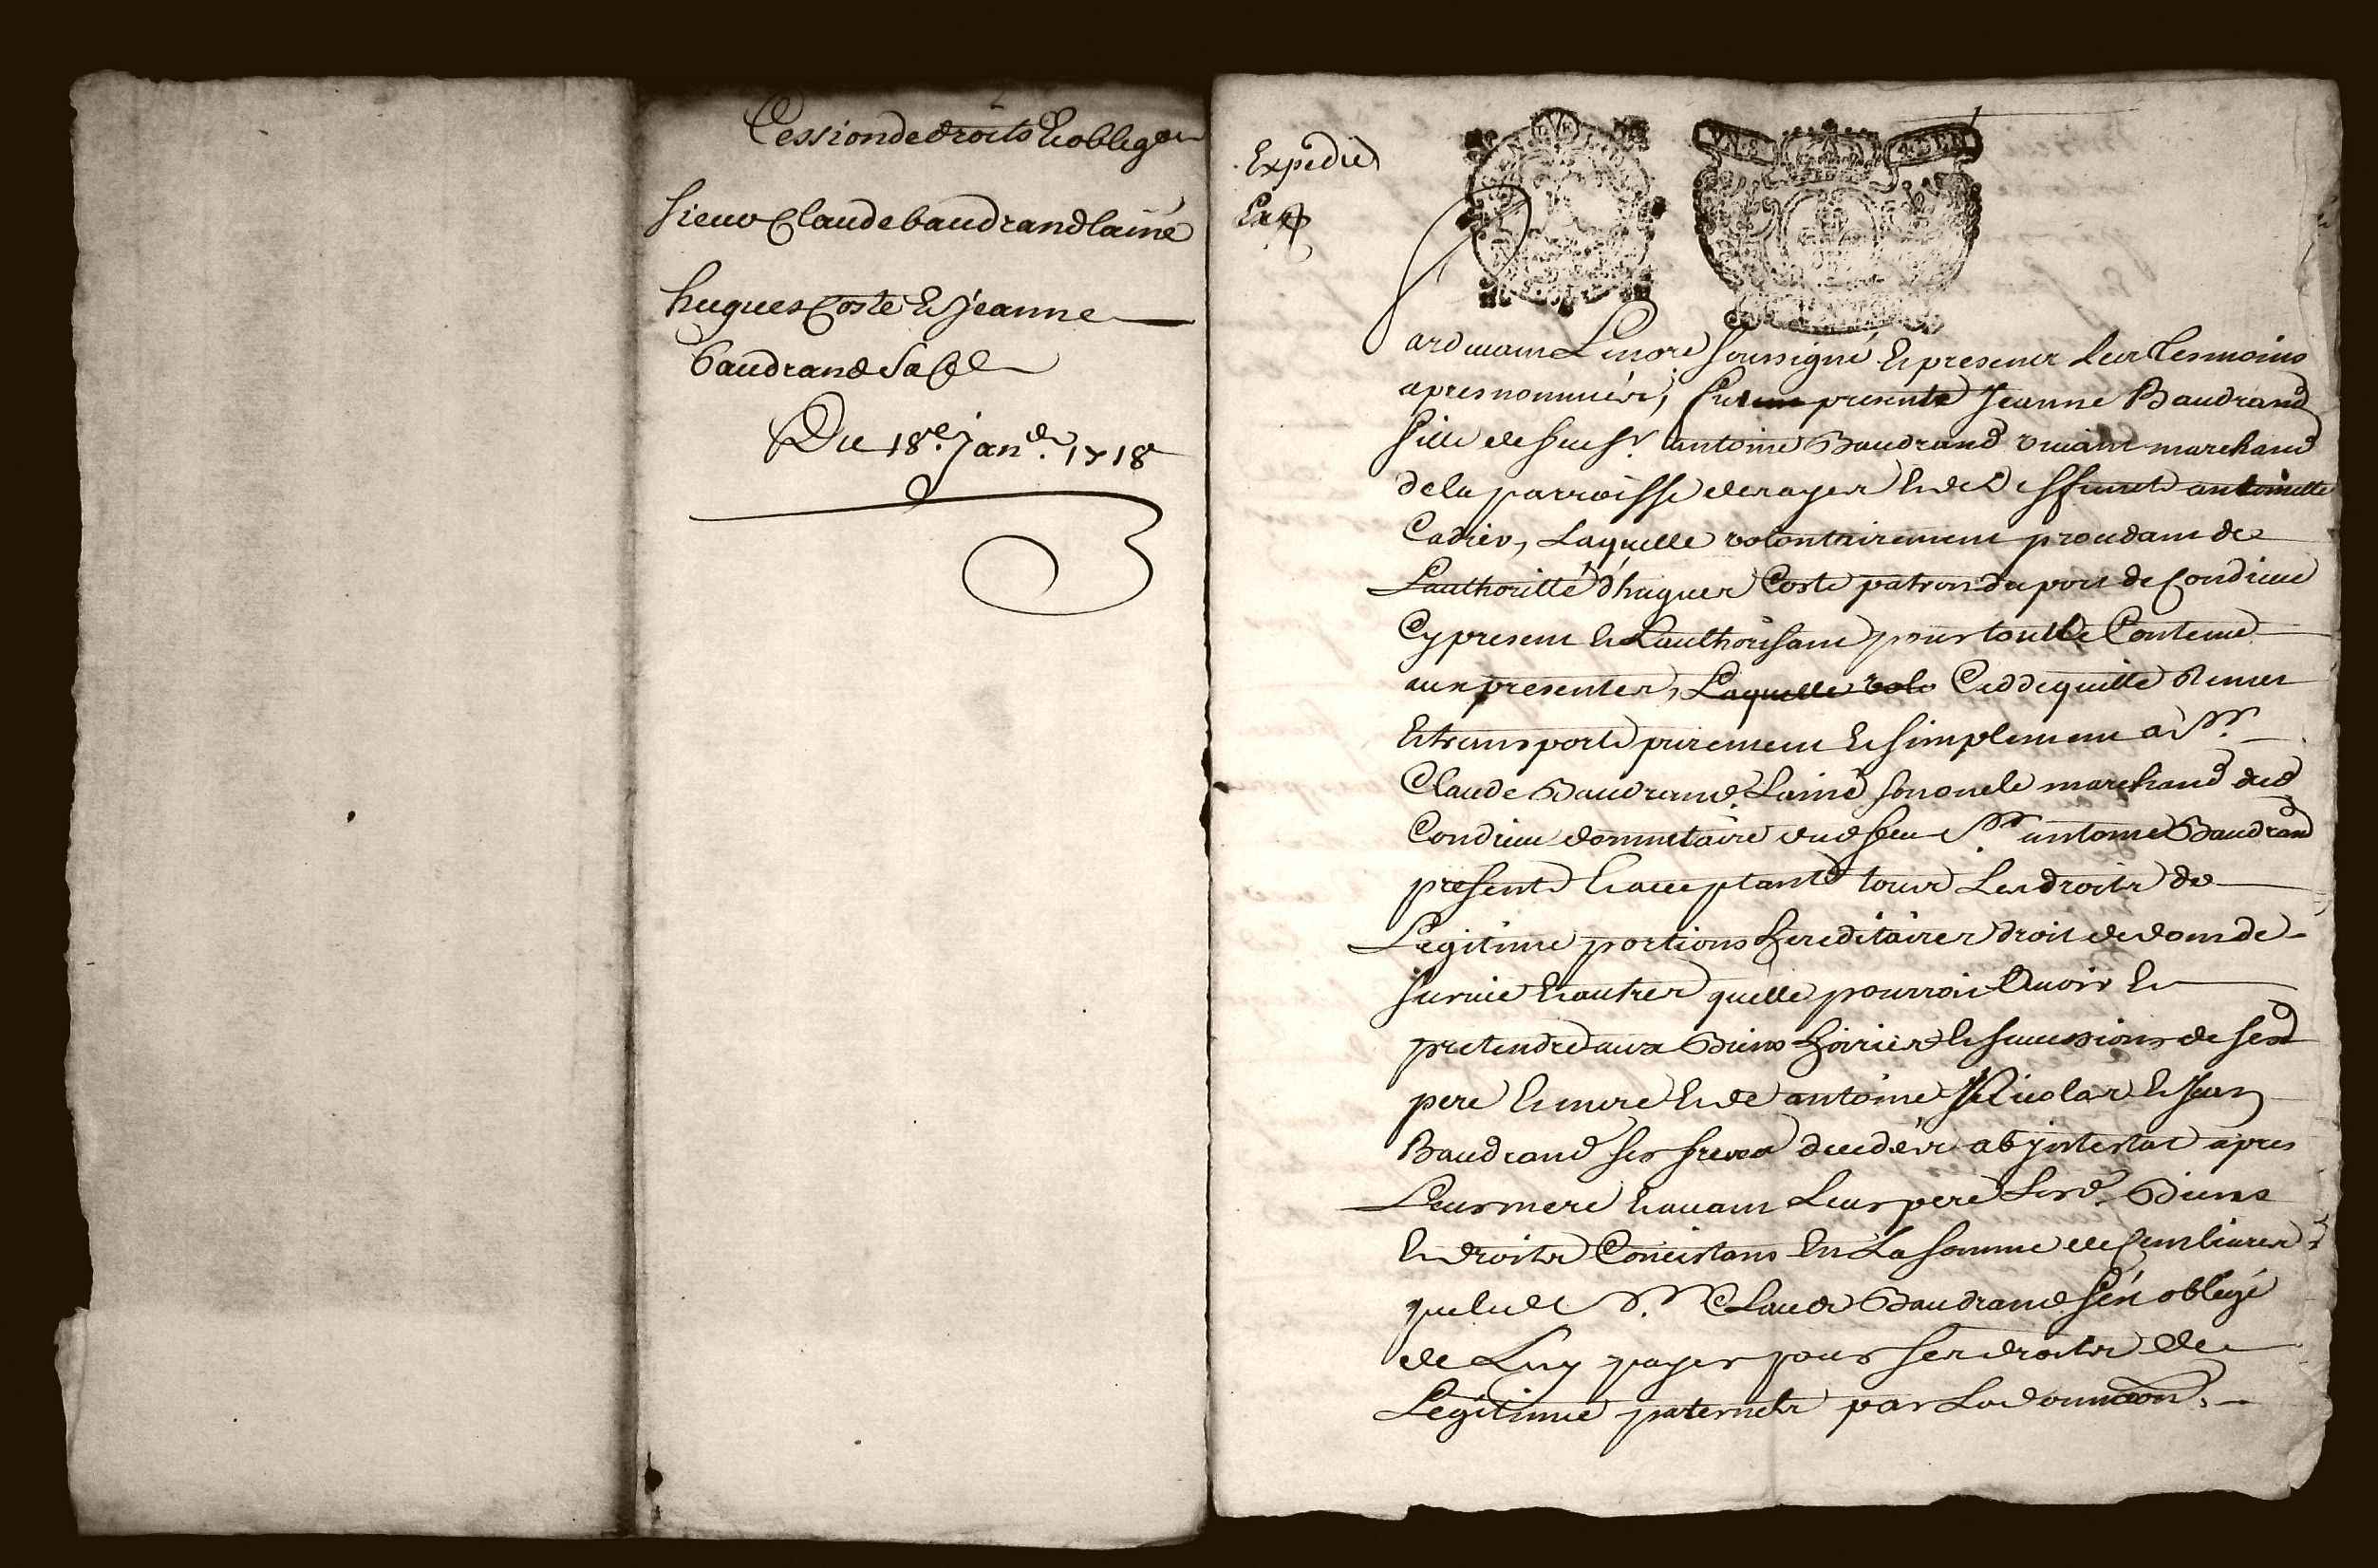 Cession de droits et oblig.on
sieur Claude baudrand laine
hugues Coste et jeanne
baudrand sa f.e
Du 18.e jan.er 1718
Expedié
Ex.
UN S. 4 DEN
Pardevant Le nore soussigné et presener les tesmoins
apres nommés, fut presente Jeanne Baudrand
fille de feu sr. antoine Baudrand vivant marchand
de la parroisse de et de deffuncte antoinette
Cadier, Laquelle volontairement procedant de
L'authoritté d'hugues Coste patron du port de Condrieu
Cy present et L'authorisant pour toutte Contenue
aux presentes, Laquelle volo Cedde quitte Remet
et transporte purement et simplement a Sr.
Claude Baudrand Lainé son oncle marchand dud
Condrieu donnataire dud feu Sr. antoine Baudrand
present et acceptant tous Les droits de
Legitime portions hereditaires droit de dom de
survie et autres quelle pourroit Avoir et
pretendre aux Biens hoiries et successions de sesd
pere et mere et de antoine Nicolas et Jean
Baudrand ses freres decedés ab jntestat apres
Leur mere et avant Leur pere Lesd. Biens
et droits Concistans en La somme de cent livres
que led Sr. Claude Baudrand sest obligé
de Luy payer pour ses droits de
Legitime paternels par La donnaon.